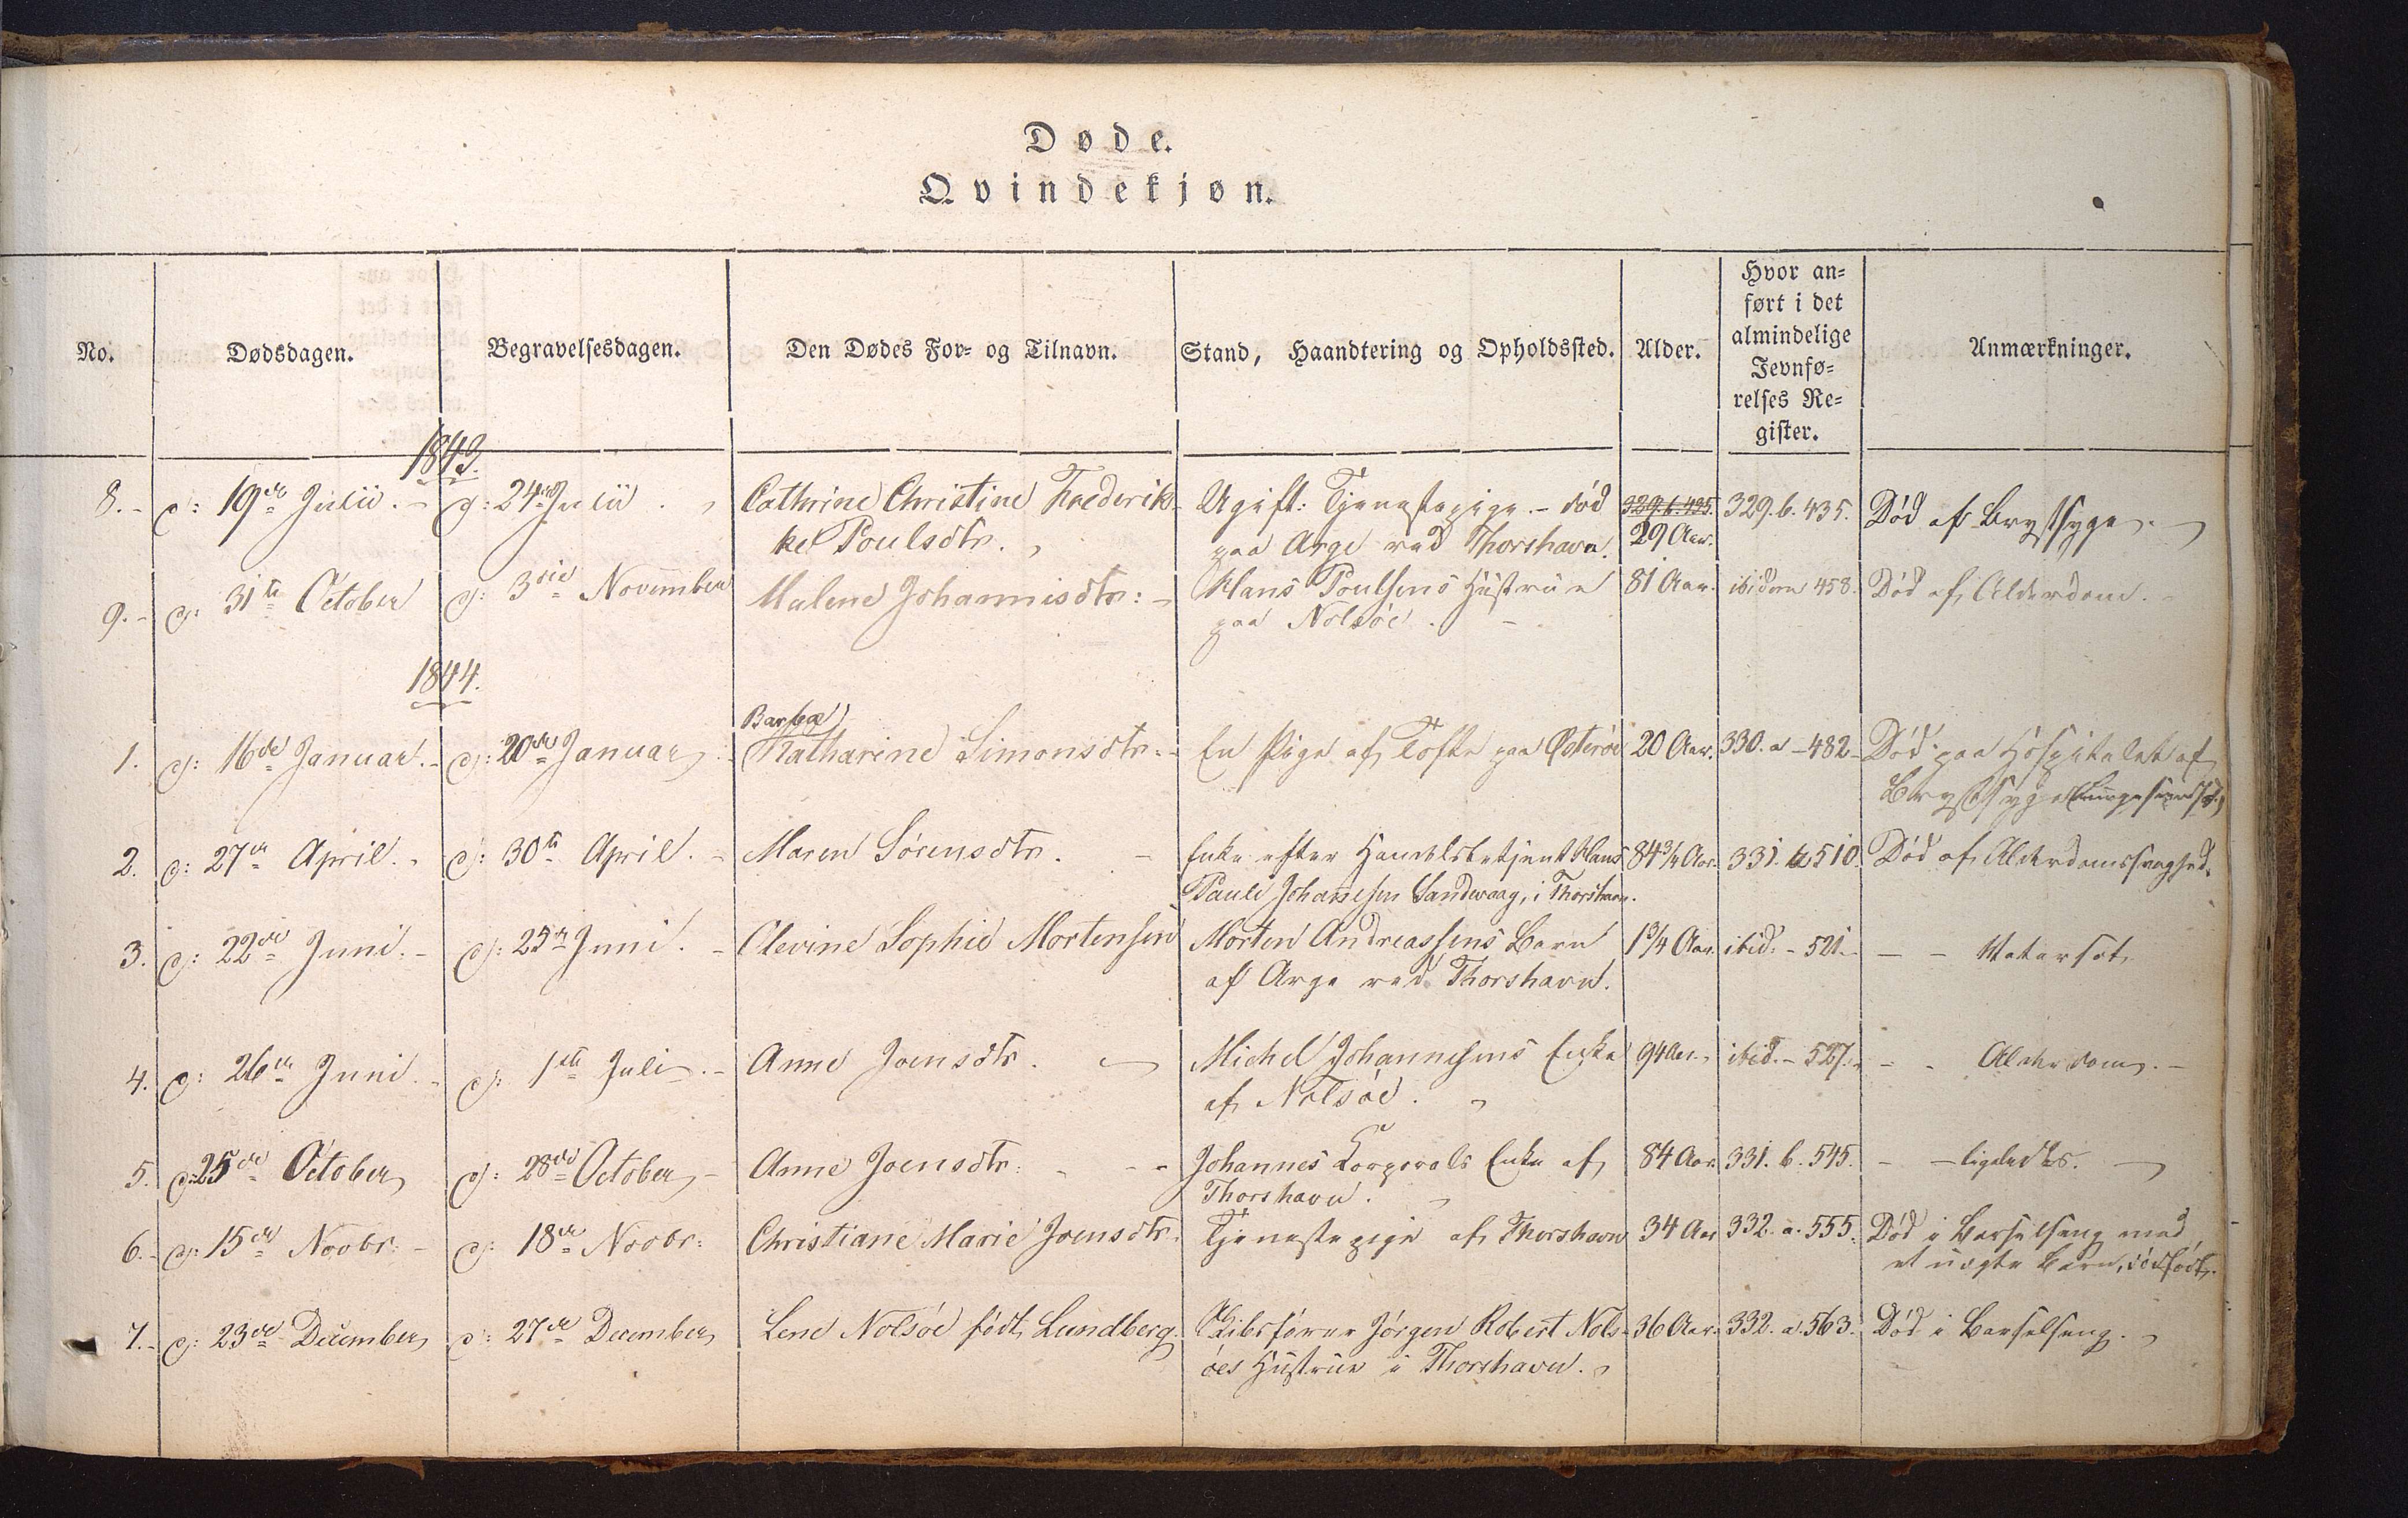 Døde.
Qvindekjøn.
No. Dødsdagen. Begravelsesdagen. Den Dødes For- og Tilnavn. Stand, Haandtering og Opholdssted. Alder. Hvor an=
ført i det
almindelige
Jevnfø=
relses Re=
gister. Anmærkninger.
1843.
8. d: 19de Julii. d: 24de Julii. Cathrine Christine Frederik- Ugift: Tjenestepige. - død 329.b.435. 329.b.435. Død af Brystsyge.
ke Poulsdtr. paa Arge ved Thorshavn. 29 Aar.
9. d: 31te October d: 3die November Malene Johannisdtr: Hans Poulsens Hustrue 81 Aar. ibidem 458. Død af Alderdom.
paa Nolsöe.
1844.
Barbæ
1. d: 16de Januar. d: 20de Januar. Katharine Simonsdtr. En Pige af Tofte paa Østerøe 20 Aar. 330. a - 482. Død paa Hospitalet af
Brystsyge
2. d: 27de April. d: 30te April. Maren Sörensdtr. Enke efter Handelsbetjent Hans 84 3/4 Aar. 331. a 510. Død af Alderdomssvaghed.
Paule Johannesen Sandwaag, i Thorshavn.
3. d: 22de Juni. d: 25de Juni. Olevine Sophie Mortensen Morten Andreassens Barn 1 3/4 Aar. ibid. - 521. - - Vatersot.
af Arge ved Thorshavn.
4. d: 26de Juni. d: 1ste Juli. Anne Joensdtr. Michel Johannesens Enke 94 Aar. ibid. - 527. - - Alderdom.
af Nolsöe.
5. d: 25de October d: 28de October Anne Joensdtr. Johannes Corporals Enke af 84 Aar. 331. b. 545. - - ligeledes.
Thorshavn.
6. d: 15de Novbr. d: 18de Novbr: Christiane Marie Joensdtr. Tjenestepige af Thorshavn 34 Aar 332. a. 555. Død i Barselseng med
et uægte Barn, dødfødt.
7. d: 23de December d: 27de December Lene Nolsöe født Lundberg. Skibsfører Jörgen Robert Nols- 36 Aar. 332. a. 563. Død i Barselseng.
öes Hustrue i Thorshavn.